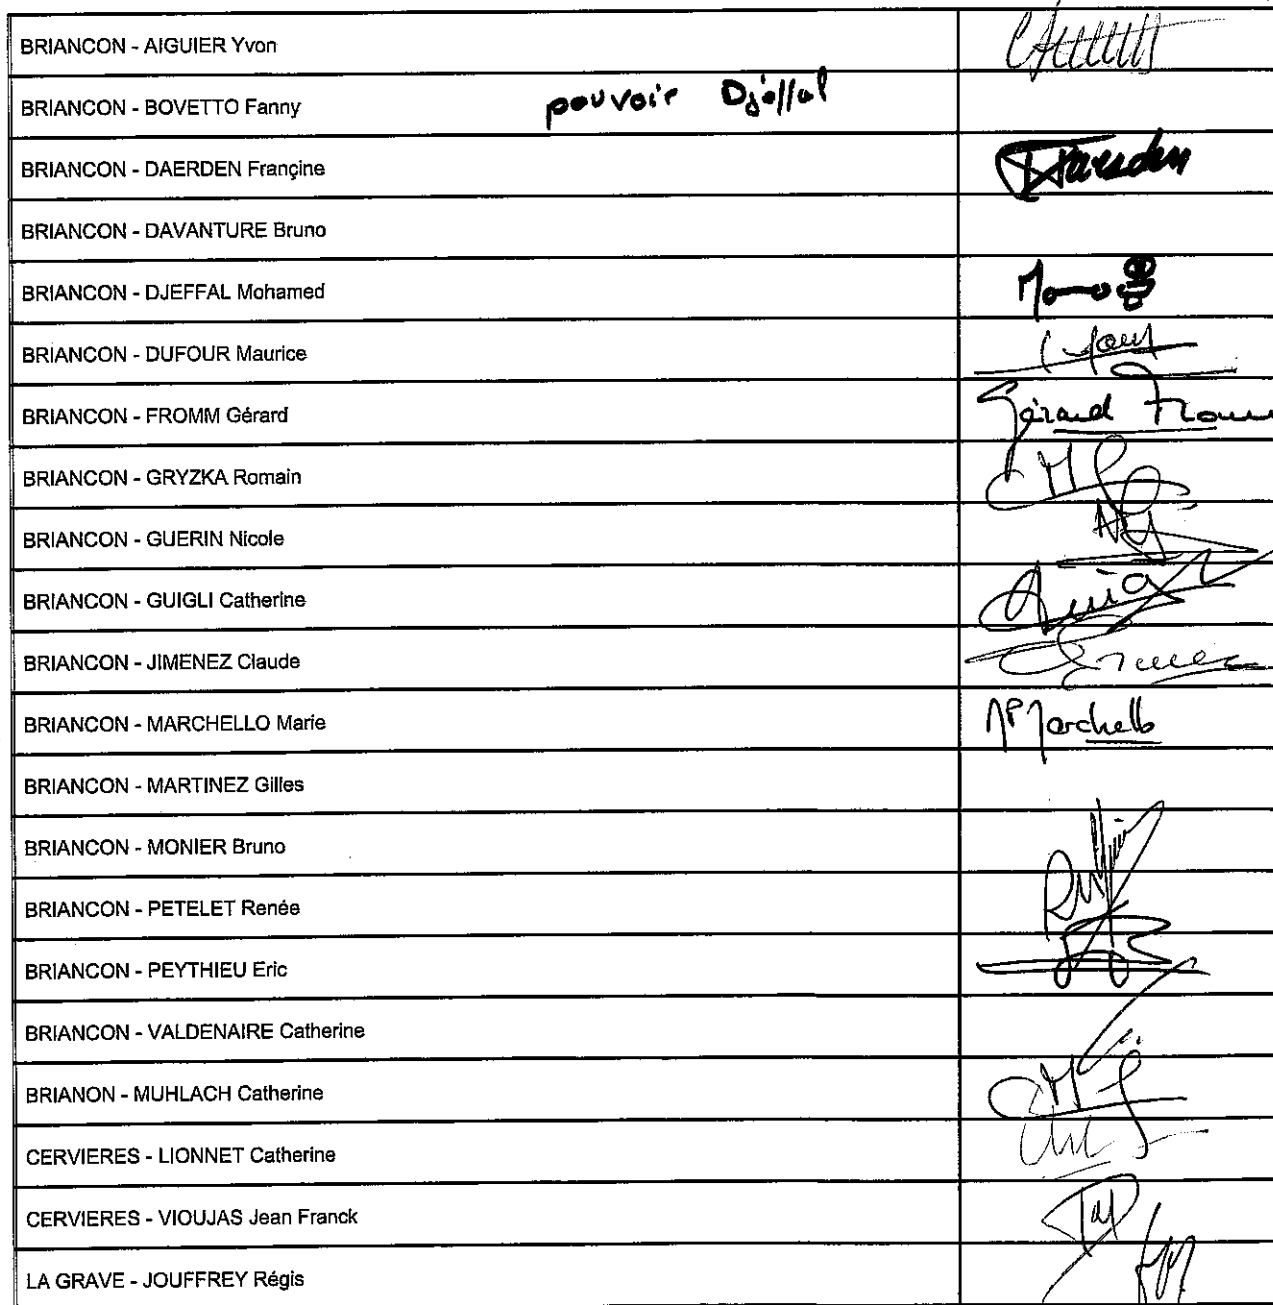 BRIANCON - AIGUIER Yvon
BRIANCON - BOVETTO Fanny pouvoir Djeffal
BRIANCON - DAERDEN Françine Daerden
BRIANCON - DAVANTURE Bruno
BRIANCON - DJEFFAL Mohamed
BRIANCON - DUFOUR Maurice
BRIANCON - FROMM Gérard Gérard Fromm
BRIANCON - GRYZKA Romain
BRIANCON - GUERIN Nicole
BRIANCON - GUIGLI Catherine
BRIANCON - JIMENEZ Claude
BRIANCON - MARCHELLO Marie Marchello
BRIANCON - MARTINEZ Gilles
BRIANCON - MONIER Bruno
BRIANCON - PETELET Renée
BRIANCON - PEYTHIEU Eric
BRIANCON - VALDENAIRE Catherine
BRIANON - MUHLACH Catherine
CERVIERES - LIONNET Catherine
CERVIERES - VIOUJAS Jean Franck
LA GRAVE - JOUFFREY Régis